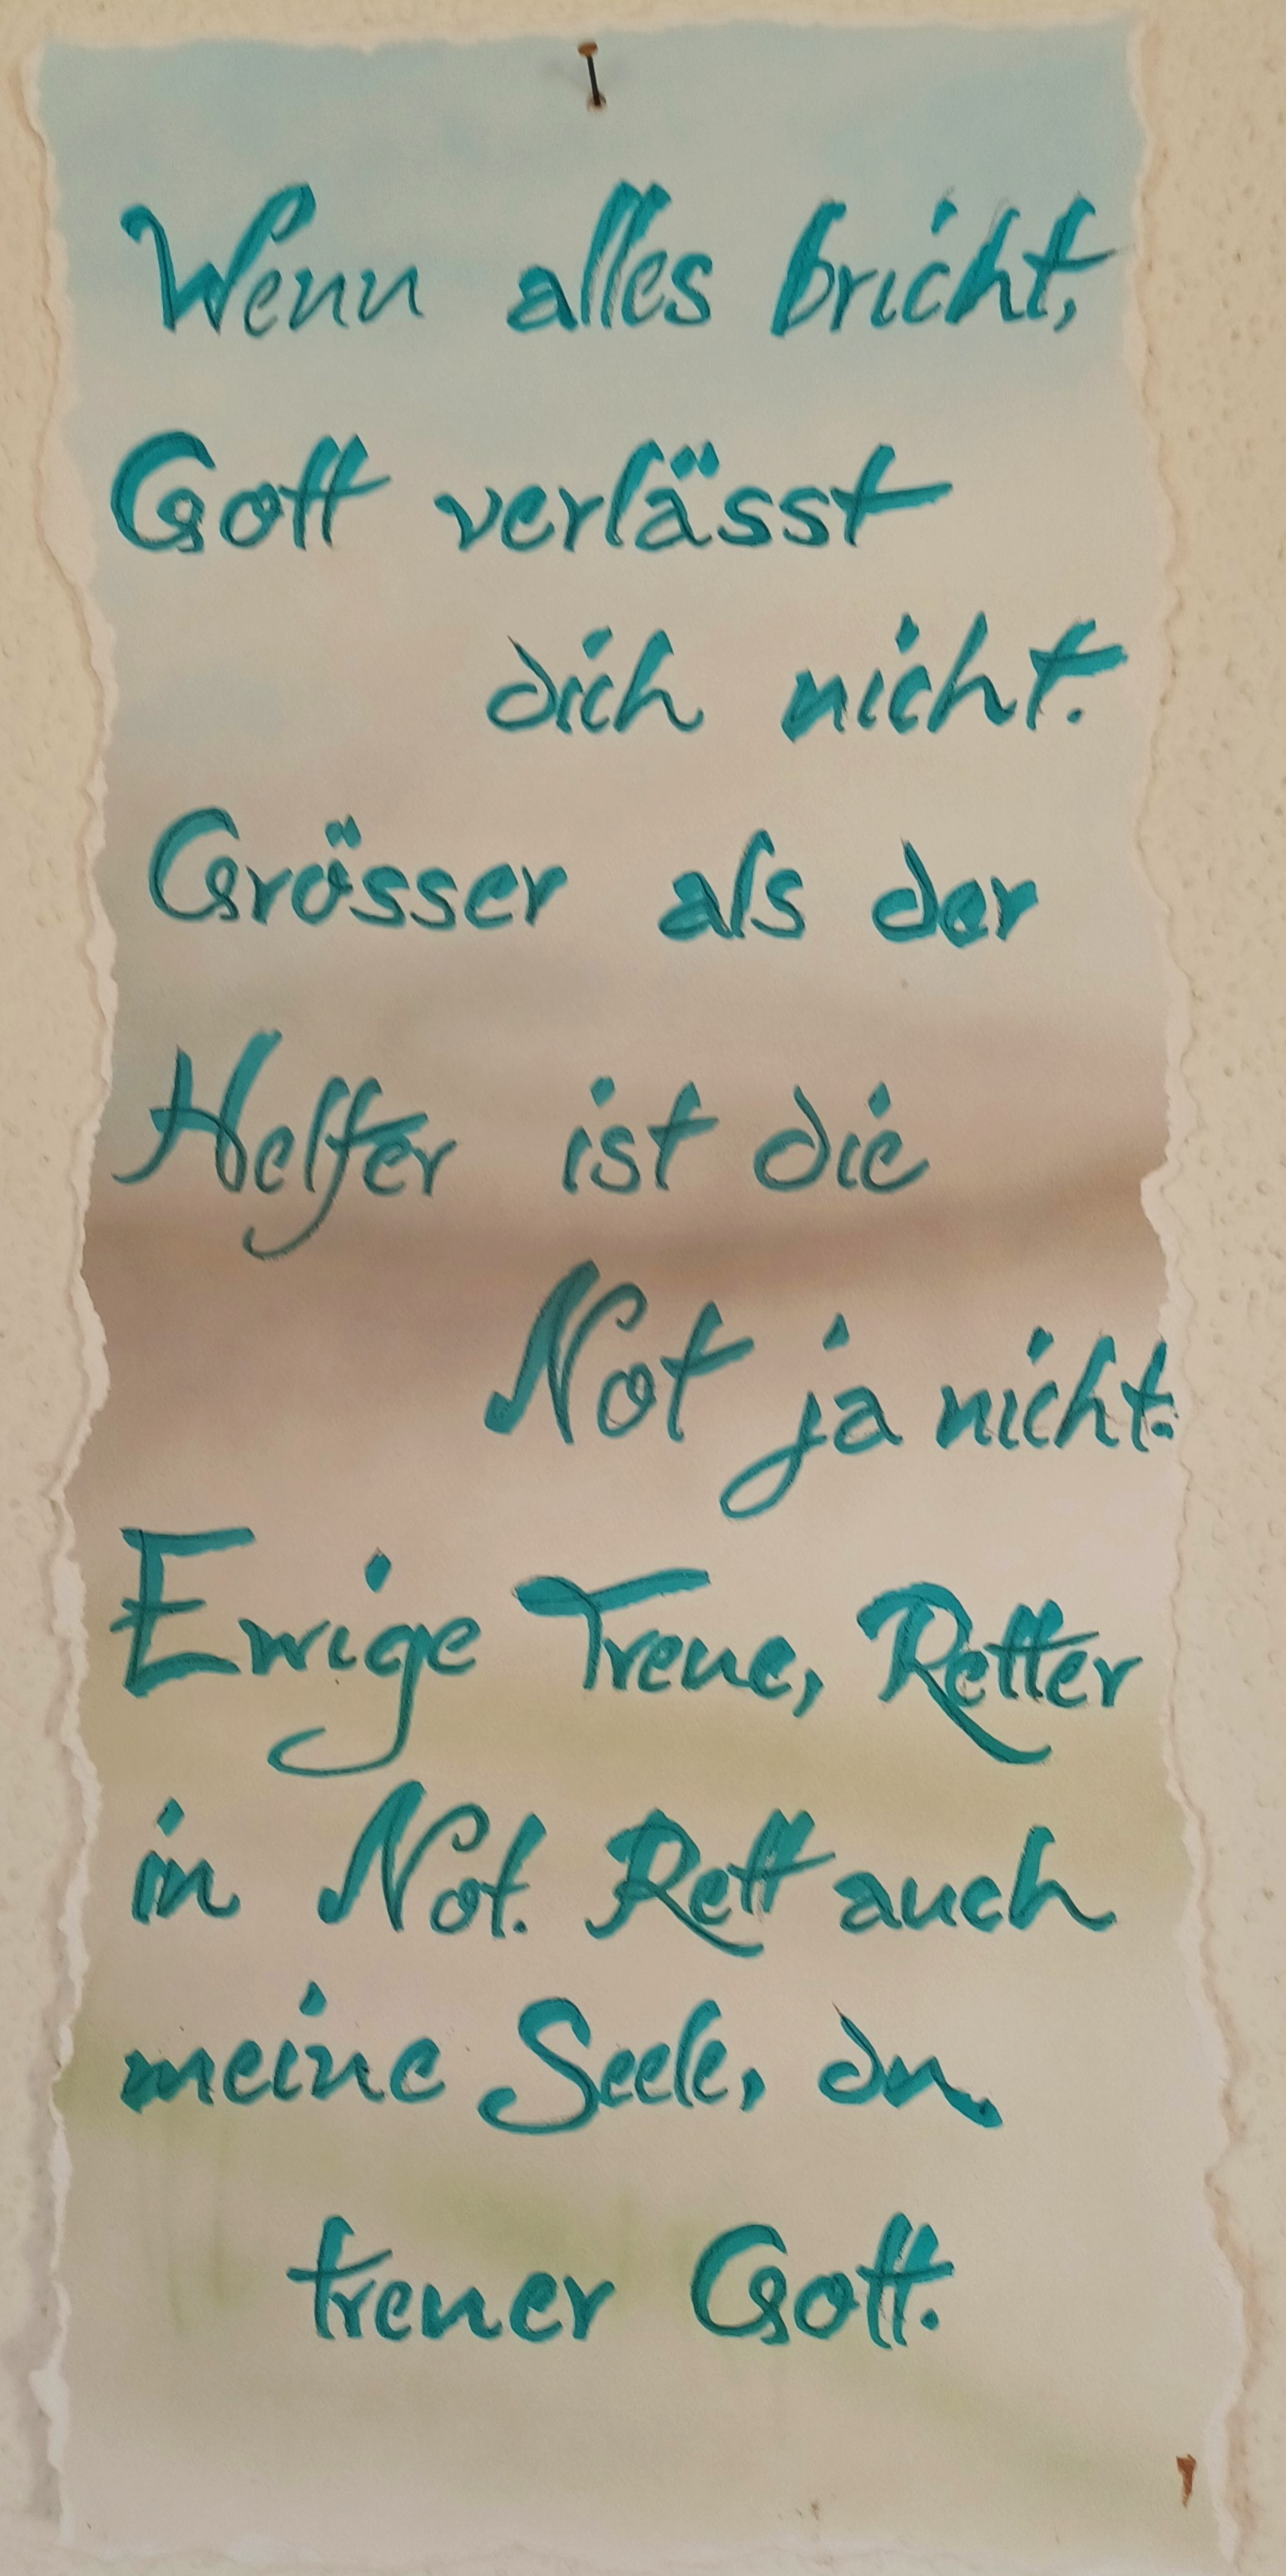 Wenn alles bricht,
Gott verlässt
dich nicht.
Grösser als der
Helfer ist die
Not ja nicht.
Ewige Treue, Retter
in Not. Rett auch
meine Seele, du
treuer Gott.